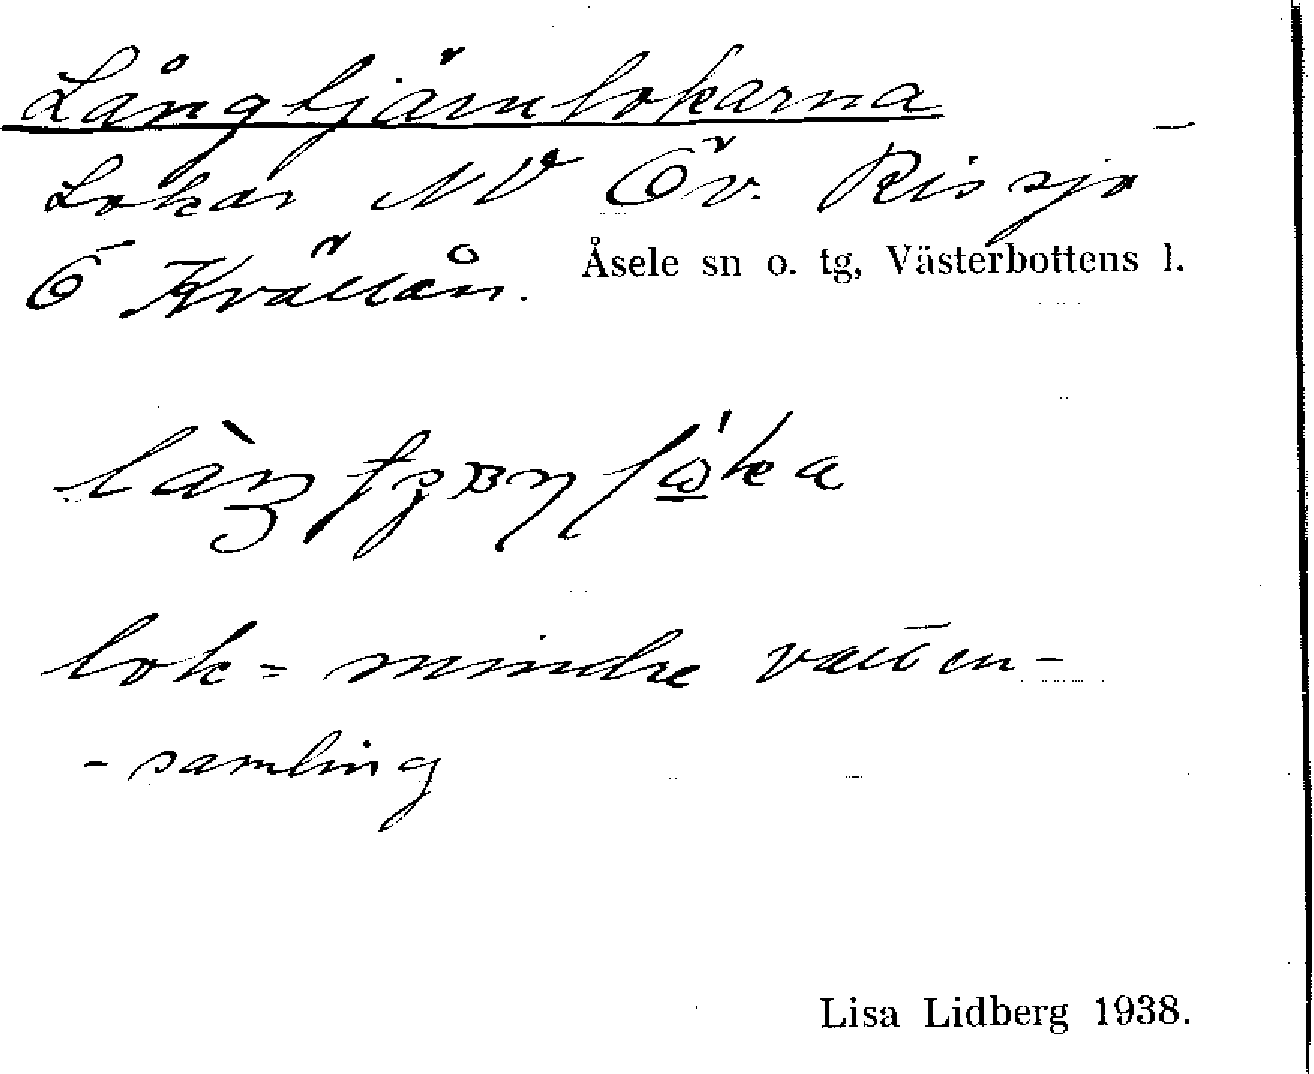 Långtjärnlokarna
Lokar NV Öv. Rissjö
Ö Kvällån. Åsele sn o. tg, Västerbottens l.
lok = mindre vatten-
-samling
Lisa Lidberg 1938.